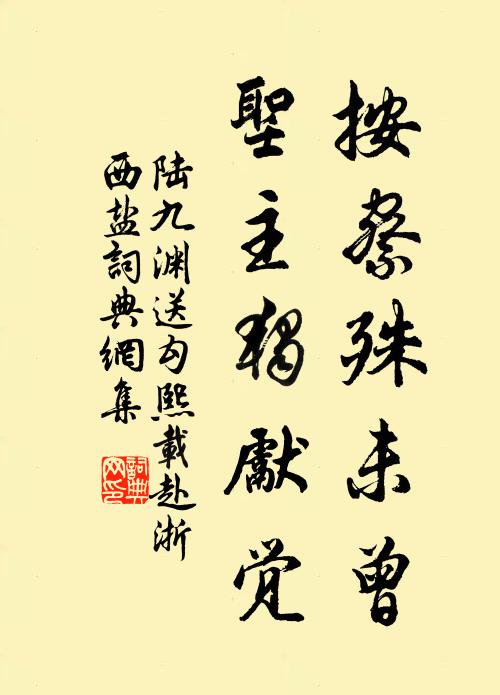 按察殊未曾
聖主獨獻覚
陸九渊送勾熙載赴浙
西盐詞典網集
詞典
网印